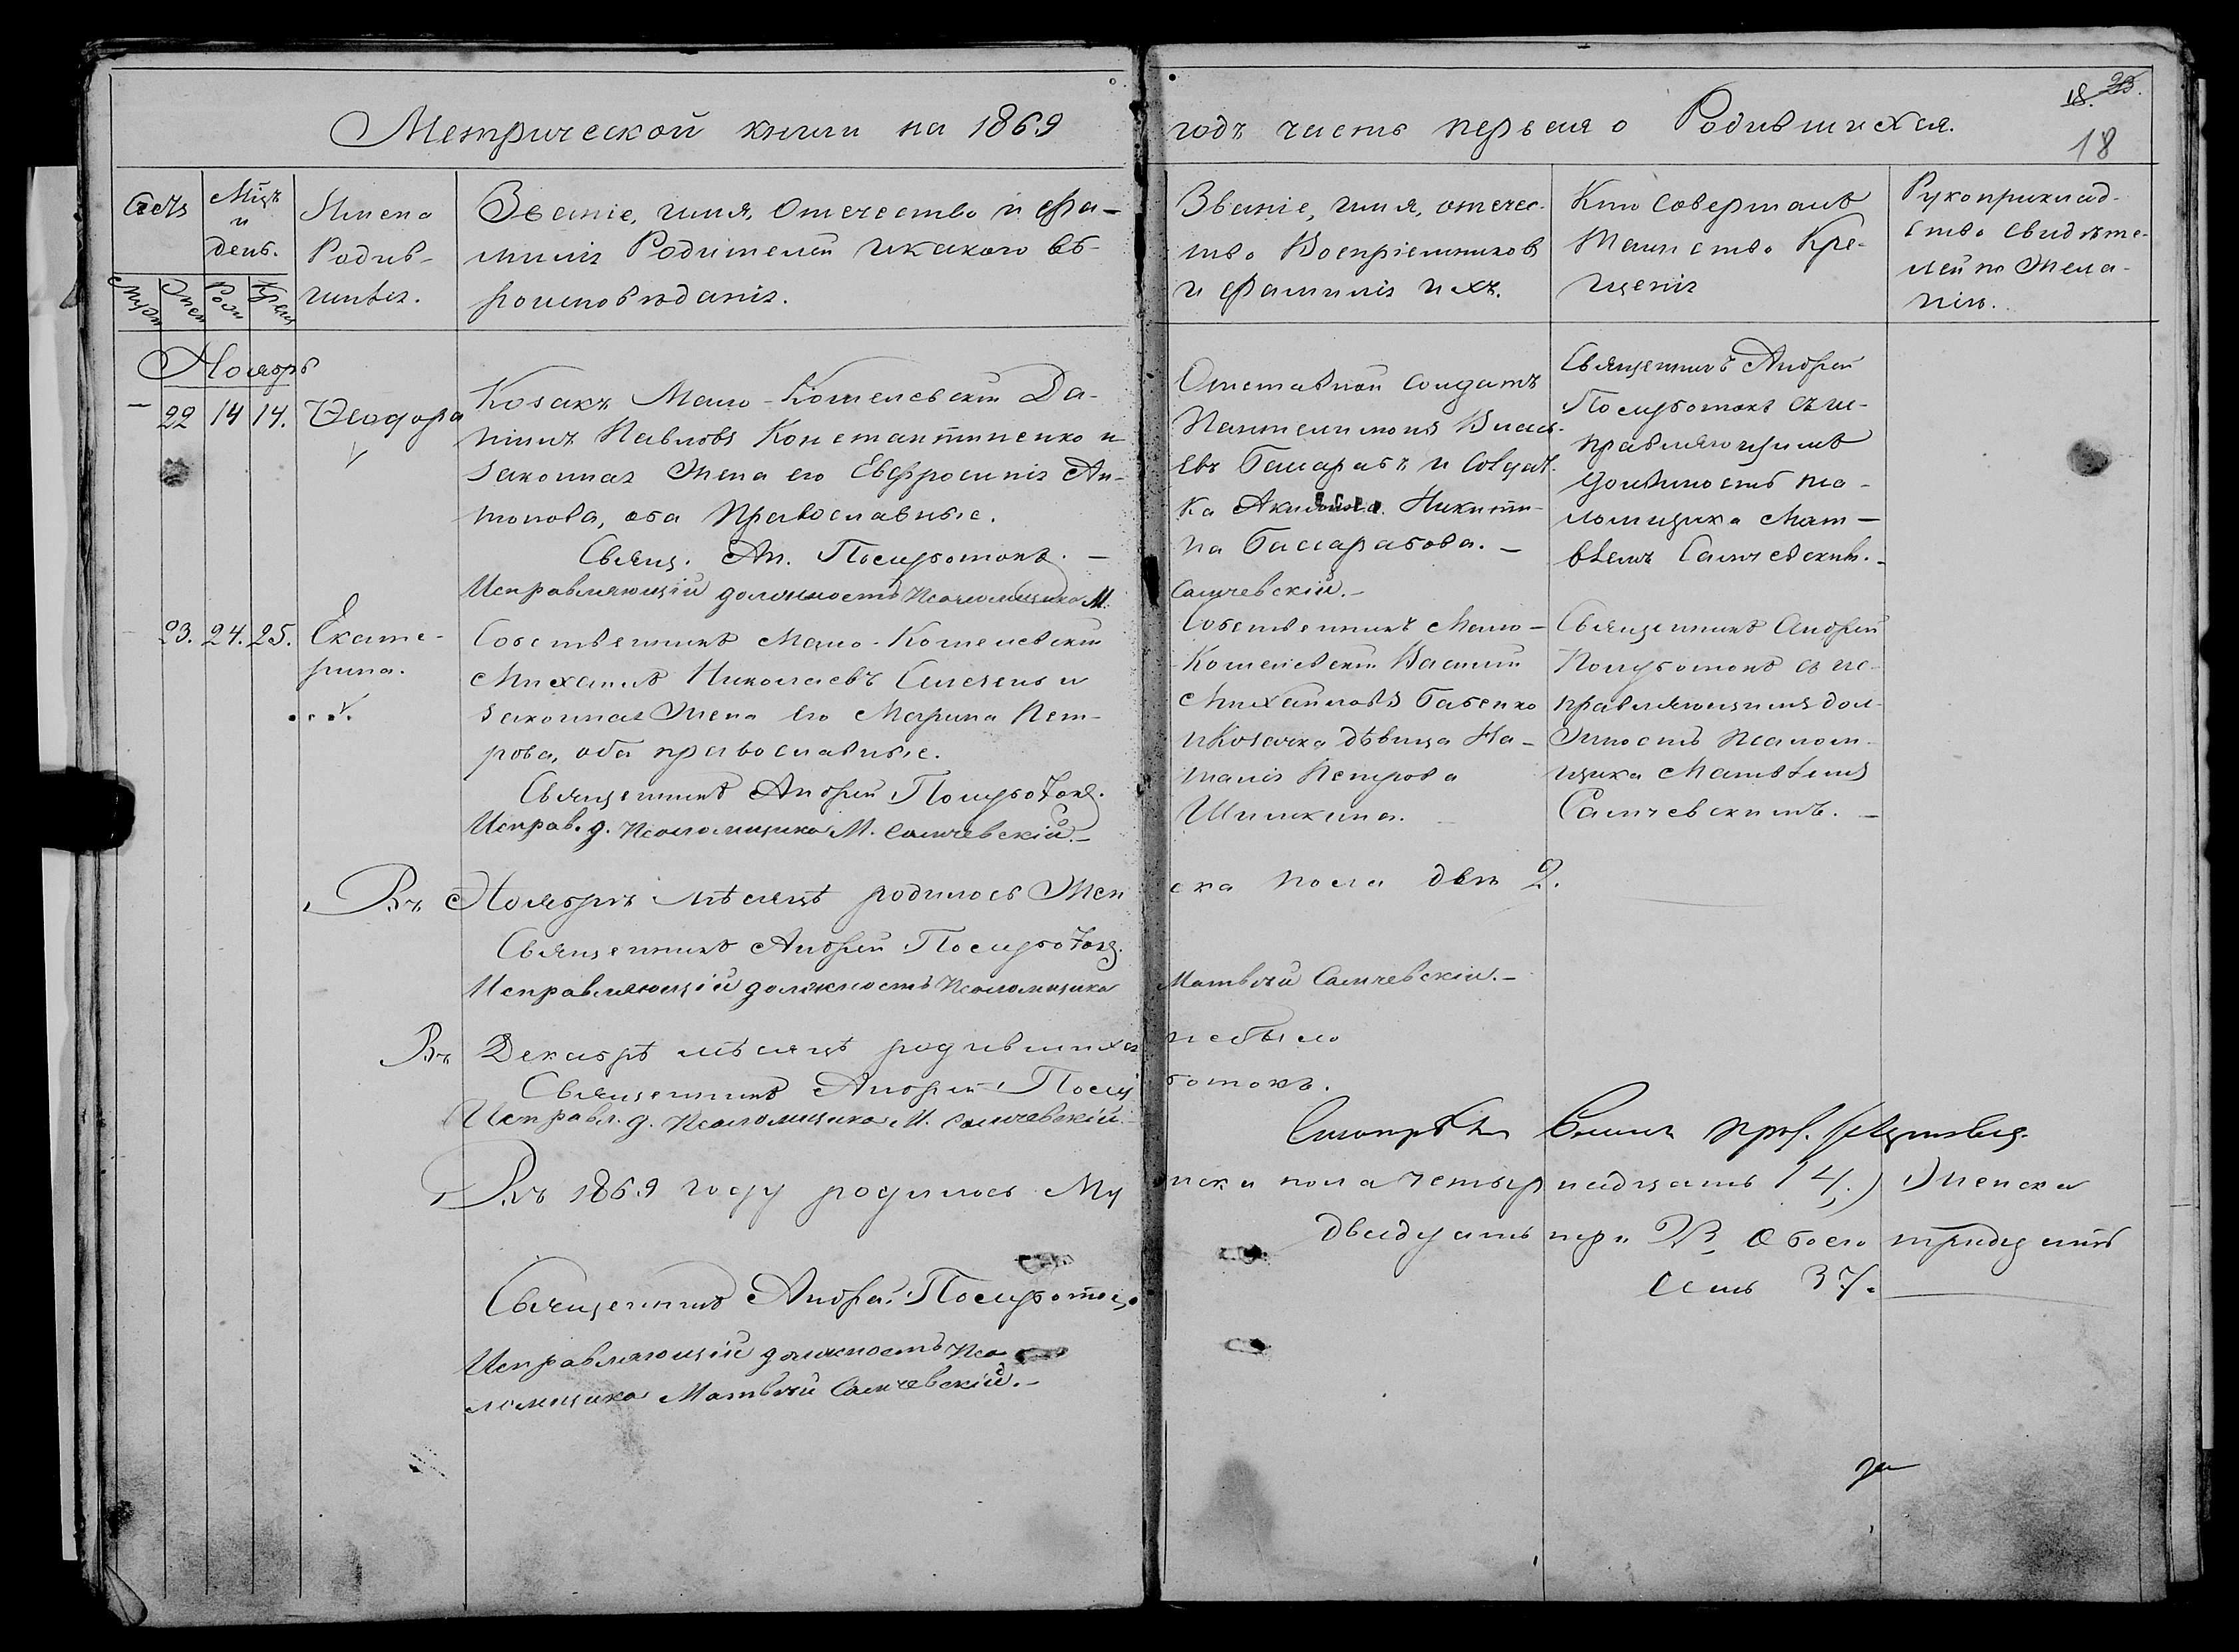 Метрической книги на 1869
годъ часть первая о Родившихся.
18.
18
Счетъ
Мцъ
и
день.
Имена
Родив-
шихся.
Званіе, имя, отечество и фа-
милія Родителей и какого вѣ-
роисповѣданія.
Званіе, имя, отечес-
тво Воспріемниковъ
и фамилія ихъ.
Кто совершалъ
таинство Кре-
щенія
Рукоприклад-
ство свидѣте-
лей по жела-
нію.
Ноябрь
22 14 14. Ѳеодора
Козакъ Мало-Котелевскій Да-
ніилъ Павловъ Константиненко и
законная жена его Евфросинія Ан-
тонова, оба Православные.
Свящ. Ан. Полуботокъ. —
Исправляющій должность Псаломщика М.
Самчевскій. —
Отставной солдатъ
Пантелимонъ Влась-
евъ и Солдат-
ка Никити-
на
Священникъ Андрей
Полуботокъ съ ис-
правляющимъ
должность пса-
ломщика Мат-
вѣемъ Самчевскимъ. -
23. 24. 25. Екате-
рина.
Собственникъ Мало-Котелевскій
Михаилъ Николаевъ и
законная жена его Марина Пет-
рова, оба православные.
Священникъ Андрей Полуботокъ.
Исправ. д. Псаломщика М. Самчевскій. —
Собственникъ Мало-
Котелевскій Василій
Михайловъ Бабенко
и Козачка дѣвица На-
талія Петрова
Шишкина.
Священникъ Андрей
Полуботокъ съ ис-
правляющимъ дол-
жность псалом-
щика Матвѣемъ
Самчевскимъ. —
Въ Ноябрѣ мѣсяцѣ родилось жен
ска пола двѣ 2.
Священникъ Андрей Полуботокъ.
Исправляющій должность Псаломщика
Матвѣй Самчевскій. —
Въ Декабрѣ мѣсяцѣ родившихся
небыло
Священникъ Андрей Полу
ботокъ.
Исправл. д. Псаломщика М. Самчевскій. -
Въ 1869 году родилось Му
жска пола четырнадцать 14,) женска
двадцать три 23, обоего тридцать
семь 37.
Священникъ Андрей Полуботокъ
Исправляющій должность Пса
ломщика Матвѣй Самчевскій. —